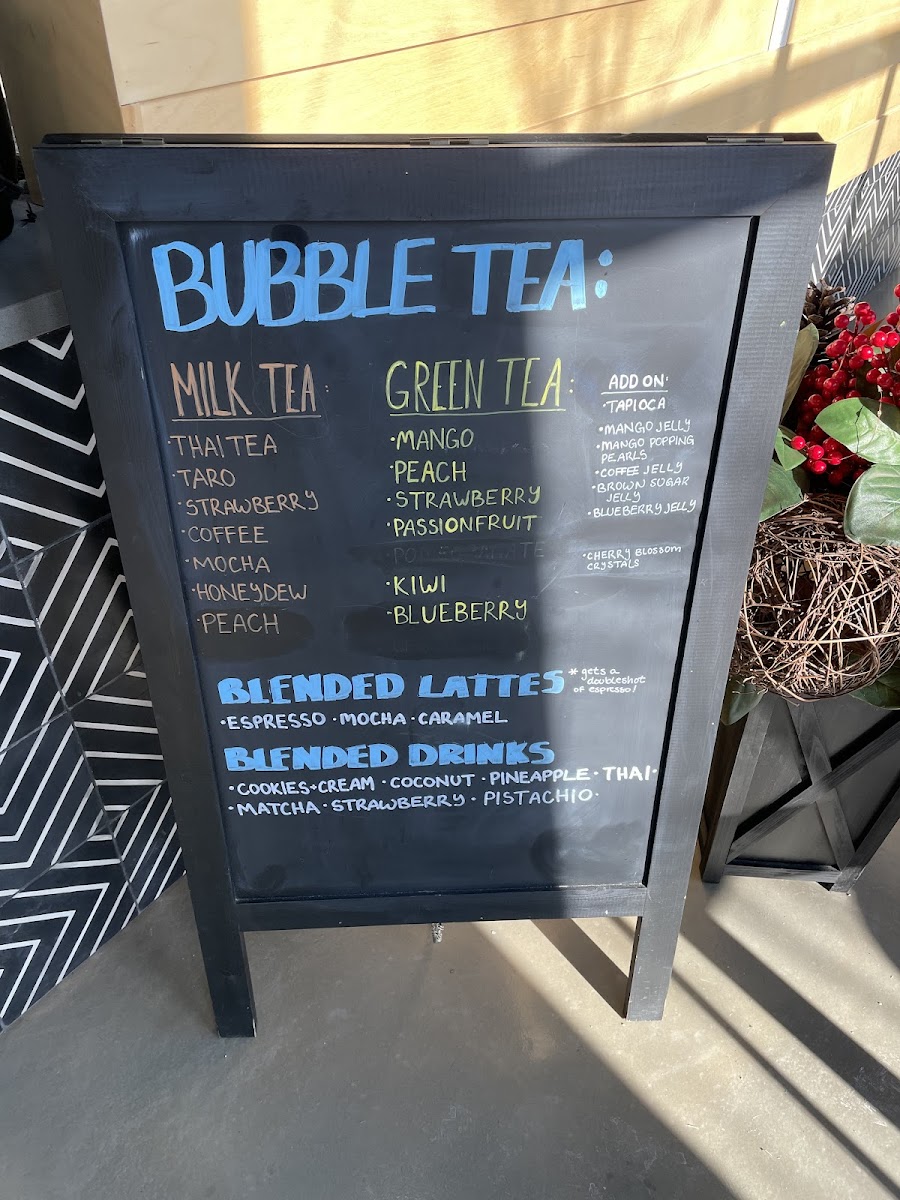 BUBBLE TEA:
MILK TEA:
·THAI TEA
·TARO
·STRAWBERRY
·COFFEE
·MOCHA
·HONEYDEW
·PEACH
GREEN TEA:
·MANGO
·PEACH
·STRAWBERRY
·PASSIONFRUIT
POMEGRANATE
·KIWI
·BLUEBERRY
ADD ON:
·TAPIOCA
·MANGO JELLY
·MANGO POPPING
PEARLS
·COFFEE JELLY
·BROWN SUGAR
JELLY
·BLUEBERRY JELLY
·CHERRY BLOSSOM
CRYSTALS
BLENDED LATTES
* gets a
doubleshot
of espresso!
·ESPRESSO ·MOCHA ·CARAMEL
BLENDED DRINKS
·COOKIES+CREAM ·COCONUT ·PINEAPPLE ·THAI·
·MATCHA ·STRAWBERRY · PISTACHIO·